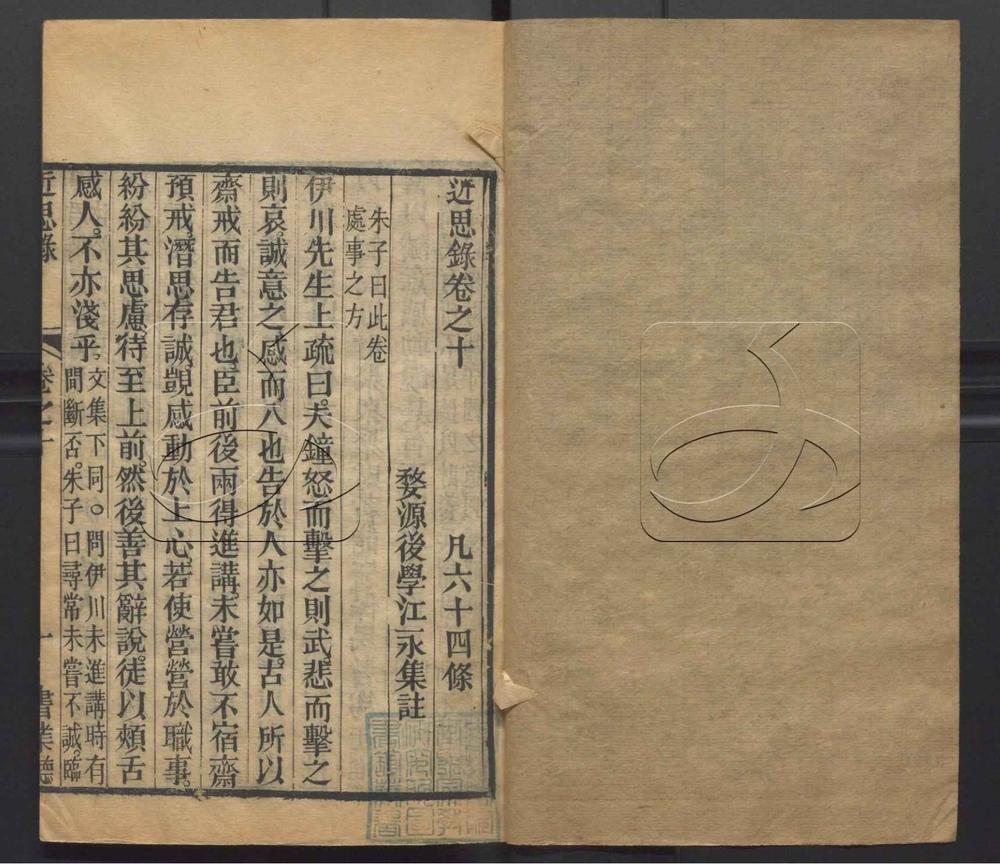 近思錄卷之十　凡六十四條
婺源後學江永集註
朱子曰此卷
處事之方
伊川先生上疏曰夫鐘怒而擊之則武悲而擊之
則哀誠意之感而入也告於人亦如是古人所以
齋戒而告君也臣前後兩得進講未嘗敢不宿齋
預戒潛思存誠覬感動於上心若使營營於職事
紛紛其思慮待至上前然後善其辭說徒以頰舌
感人不亦淺乎
文集下同○問伊川未進講時有
間斷否朱子曰尋常未嘗不誠臨
近思錄　卷之十　一　書業德